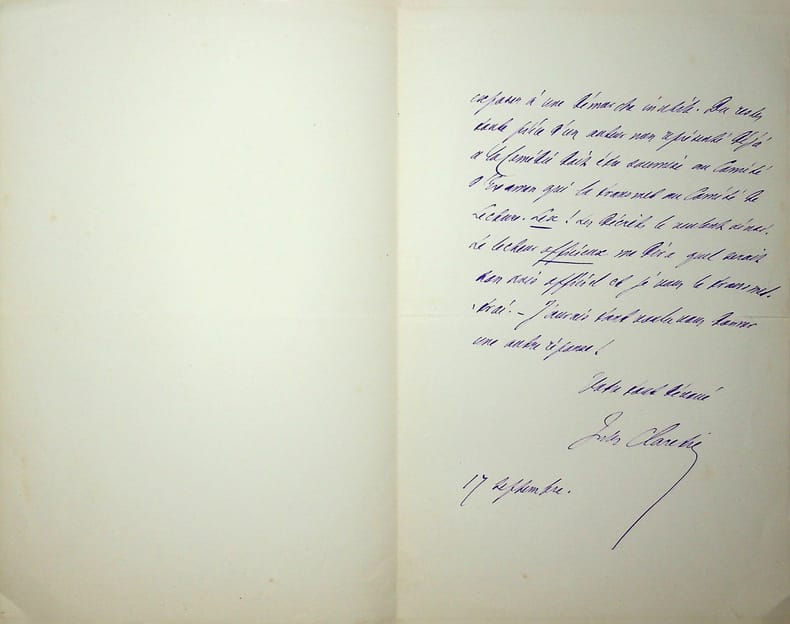 exposer à une démarche inutile. Du reste,
toute pièce d'un auteur non représenté déjà
à la Comédie doit être soumise au Comité
d'Examen qui la transmet au Comité de
Lecture. Lex ! Les décrets le veulent ainsi.
Le lecteur officieux me dira quel serait
son avis officiel et je vous le transmet-
trai. — J'aurais tant voulu vous donner
une autre réponse !
Votre tout dévoué
Jules Claretie
17 septembre.